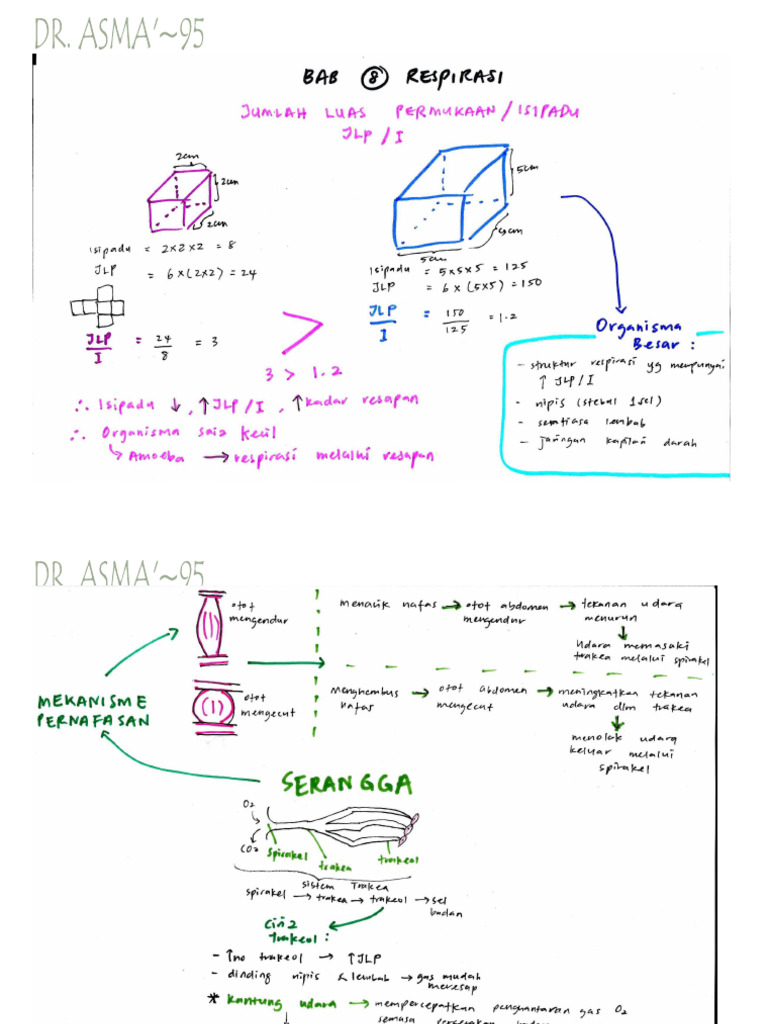 DR. ASMA'~95
BAB 8 RESPIRASI
JUMLAH LUAS PERMUKAAN / ISIPADU
JLP / I
2cm
2cm
2cm
Isipadu = 2×2×2 = 8
JLP = 6×(2×2) = 24
JLP/I = 24/8 = 3
5cm
5cm
5cm
Isipadu = 5×5×5 = 125
JLP = 6×(5×5) = 150
JLP/I = 150/125 = 1.2
>
3 > 1.2
∴ Isipadu ↓, ↑JLP/I, ↑kadar resapan
∴ Organisma saiz kecil
↳ Amoeba → respirasi melalui resapan
Organisma
Besar :
- struktur respirasi yg mempunyai
↑ JLP/I
- nipis (setebal 1sel)
- sentiasa lembab
- jaringan kapilari darah
DR. ASMA'~95
MEKANISME
PERNAFASAN
otot
mengendur
otot
mengecut
menarik nafas → otot abdomen mengendur → tekanan udara menurun
↓
Udara memasuki
trakea melalui spirakel
Menghembus nafas → otot abdomen mengecut → meningkatkan tekanan udara dlm trakea
↓
menolak udara
keluar melalui
spirakel
SERANGGA
O2
CO2
spirakel
trakea
trakeol
sistem Trakea
spirakel → trakea → trakeol → sel badan
Ciri2
trakeol :
- ↑no trakeol → ↑JLP
- dinding nipis & lembab → gas mudah meresap
* Kantung udara → mempercepatkan penghantaran gas O2
semasa